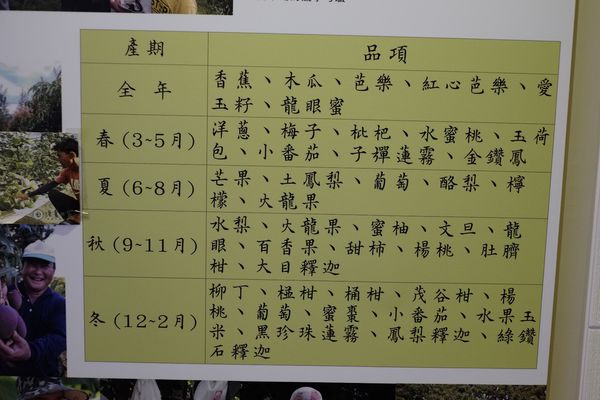 產期 品項
全年 香蕉、木瓜、芭樂、紅心芭樂、愛
玉籽、龍眼蜜
春(3~5月) 洋蔥、梅子、枇杷、水蜜桃、玉荷
包、小番茄、子彈蓮霧、金鑽鳳
夏(6~8月) 芒果、土鳳梨、葡萄、酪梨、檸
檬、火龍果
秋(9~11月) 水梨、火龍果、蜜柚、文旦、龍
眼、百香果、甜柿、楊桃、肚臍
柑、大目釋迦
冬(12~2月) 柳丁、椪柑、桶柑、茂谷柑、楊
桃、葡萄、蜜棗、小番茄、水果玉
米、黑珍珠蓮霧、鳳梨釋迦、綠鑽
石釋迦